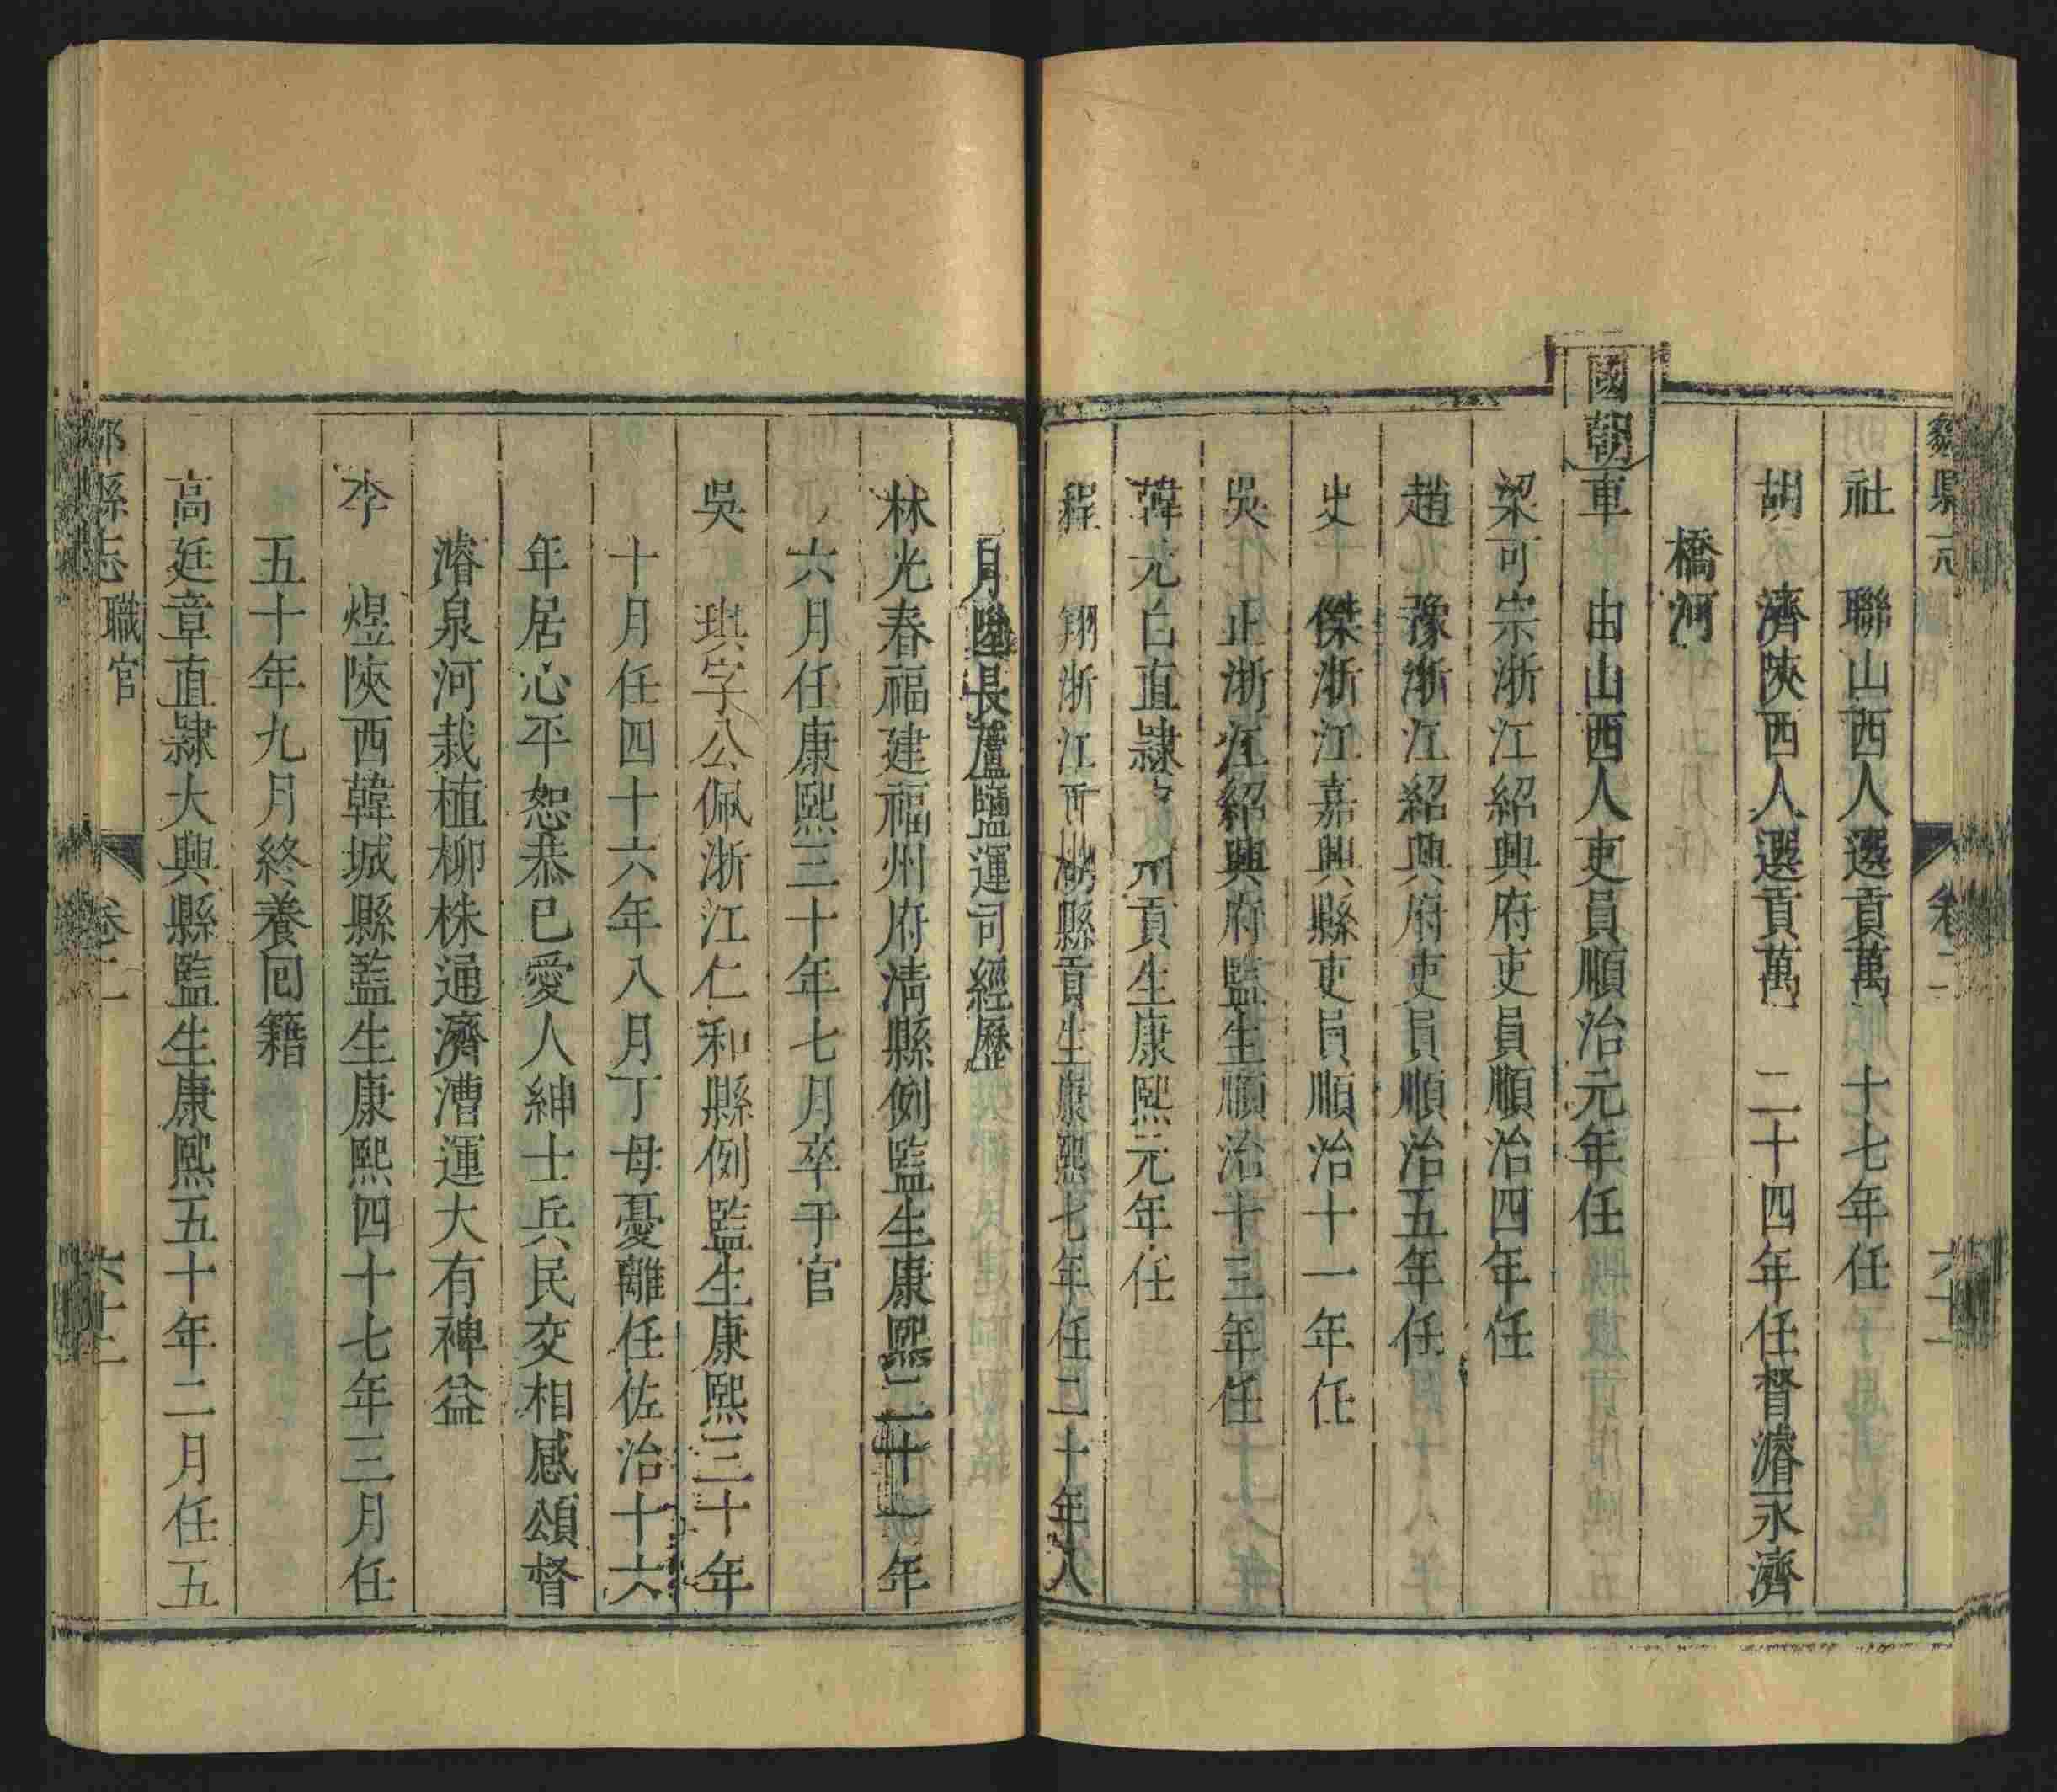 社　聯山西人選貢萬　十七年任
胡　濟陝西人選貢萬　二十四年任督濬永濟
橋河
國朝車　由山西人吏員順治元年任
梁可宗浙江紹興府吏員順治四年任
趙　豫浙江紹興府吏員順治五年任
史　傑浙江嘉興縣吏員順治十一年任
吳　正浙江紹興府監生順治十三年任
韓元白直隸　州貢生康熙元年任
程　翔浙江　縣貢生康熙七年任二十年八
月陞長蘆鹽運司經歷
林光春福建福州府清縣例監生康熙二十七年
六月任康熙三十年七月卒于官
吳　琪字公佩浙江仁和縣例監生康熙三十年
十月任四十六年八月丁母憂離任佐治十六
年居心平恕恭已愛人紳士兵民交相感頌督
濬泉河栽植柳株通濟漕運大有裨益
李　煜陝西韓城縣監生康熙四十七年三月任
五十年九月終養回籍
高廷章直隸大興縣監生康熙五十年二月任五
縣志　職官　卷二　六十二